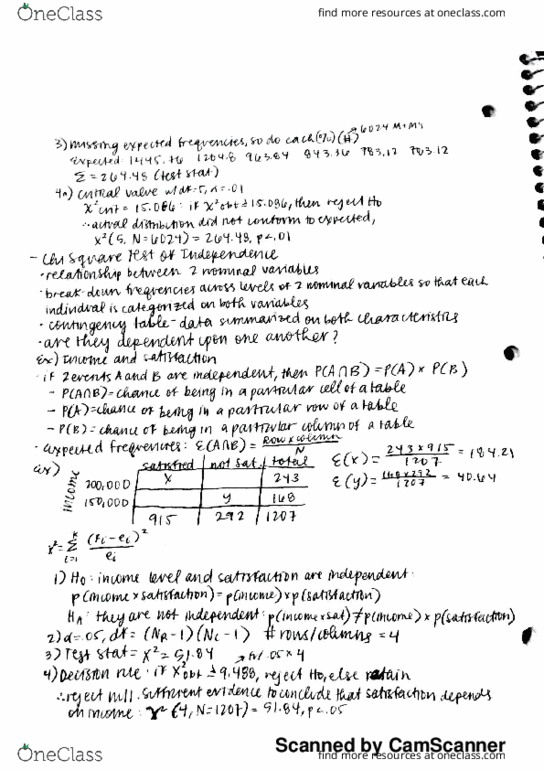 OneClass
find more resources at oneclass.com
3) missing expected frequencies, so do each (%)(#) → 6024 M+M's
Expected: 1445.76 1204.8 963.84 843.36 783.12 783.12
Σ = 264.48 (test stat)
4) critical value w/ df=5, α=.01
X² crit = 15.086: if X² obt ≥ 15.086, then reject Ho
∴ actual distribution did not conform to expected,
X²(5, N=6024) = 264.48, p<.01
- Chi Square Test of Independence
• relationship between 2 nominal variables
• break down frequencies across levels of 2 nominal variables so that each
individual is categorized on both variables
• contingency table - data summarized on both characteristics
• are they dependent upon one another?
Ex) Income and satisfaction
• if 2 events A and B are independent, then P(A∩B) = P(A) × P(B)
- P(A∩B) = chance of being in a particular cell of a table
- P(A) = chance of being in a particular row of a table
- P(B) = chance of being in a particular column of a table
• expected frequencies: E(A∩B) = Row x column / N
ex) satisfied not sat. total
income
200,000 X 243
150,000 y 168
915 292 1207
E(x) = 243 x 915 / 1207 = 184.21
E(y) = 168 x 292 / 1207 = 40.64
X² = Σ (fi - ei)² / ei
k
i=1
1) Ho: income level and satisfaction are independent:
p(income x satisfaction) = p(income) x p(satisfaction)
HA: they are not independent: p(income x sat) ≠ p(income) x p(satisfaction)
2) α=.05, df = (NR-1)(NC-1) # rows/columns = 4
3) Test stat = X² = 51.84
.05 x 4
4) Decision rule: if X² obt ≥ 9.488, reject Ho, else retain
∴ reject null. Sufficient evidence to conclude that satisfaction depends
on income: X²(4, N=1207) = 51.84, p<.05
Scanned by CamScanner
OneClass
find more resources at oneclass.com